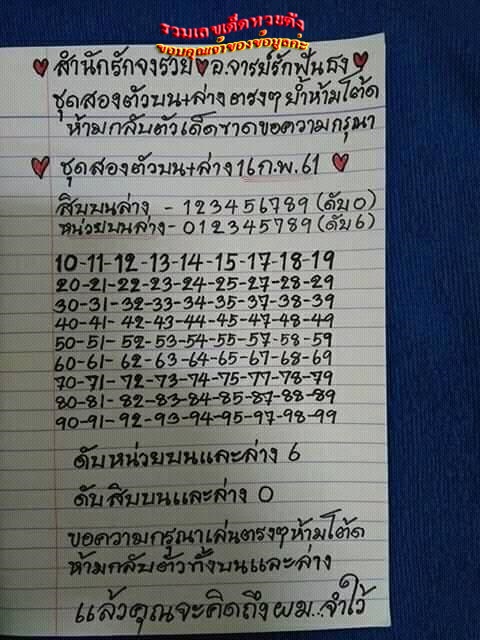 รวมเลขเด็ดหวยดัง
ขอบคุณเจ้าของข้อมูลค่ะ
สำนักรักจงรวย อ.จารย์รักฟันธง
ชุดสองตัวบน+ล่างตรงๆย้ำห้ามโต้ด
ห้ามกลับตัวเด็ดขาดขอความกรุณา
ชุดสองตัวบน+ล่าง16ก.พ.61
สิบบนล่าง - 123456789 (ดับ0)
หน่วยบนล่าง- 012345789 (ดับ6)
10-11-12-13-14-15-17-18-19
20-21-22-23-24-25-27-28-29
30-31-32-33-34-35-37-38-39
40-41-42-43-44-45-47-48-49
50-51-52-53-54-55-57-58-59
60-61-62-63-64-65-67-68-69
70-71-72-73-74-75-77-78-79
80-81-82-83-84-85-87-88-89
90-91-92-93-94-95-97-98-99
ดับหน่วยบนและล่าง 6
ดับสิบบนและล่าง 0
ขอความกรุณาเล่นตรงๆห้ามโต้ด
ห้ามกลับตัวทั้งบนและล่าง
แล้วคุณจะคิดถึงผม..จำไว้